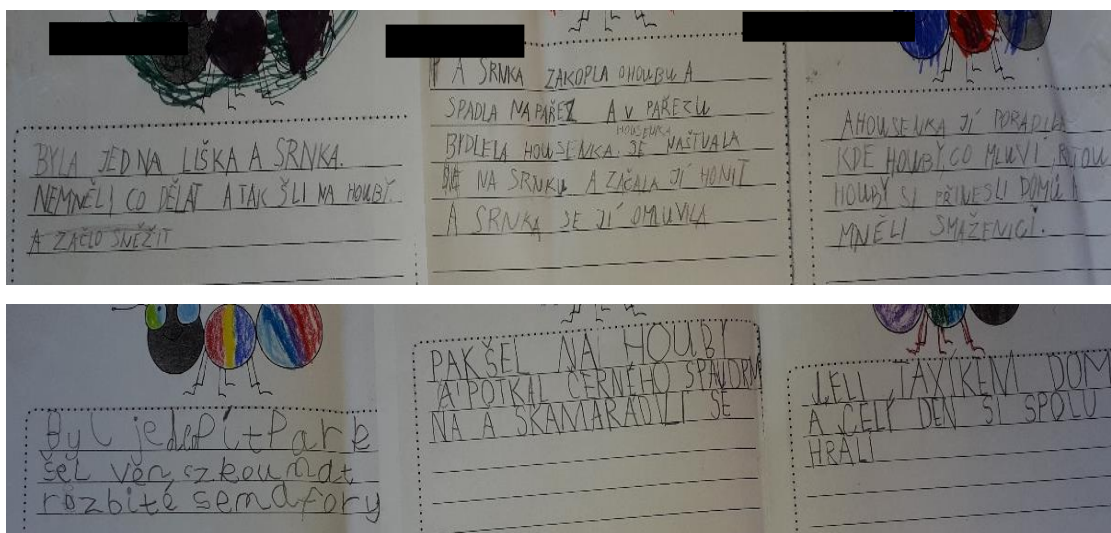 BYLA JEDNA LIŠKA A SRNKA.
NEMNĚLI CO DĚLAT A TAK ŠLI NA HOUBY.
A ZAČLO SNĚŽIT
A SRNKA ZAKOPLA OHOUBU A
SPADLA NAPAŘEZ A V PAŘEZU
BYDLELA HOUSENKA. HOUSENKA SE NAŠTVALA
NA SRNKU A ZAČALA JÍ HONIT
A SRNKA SE JÍ OMLUVILA
AHOUSENKA JÍ PORADILA
KDE HOUBY, CO MLUVÍ, ROU
HOUBY SI PŘINESLI DOMŮ A
MNĚLI SMAŽENICI.
Byl jeden pítPark
šel ven zkoumat
rozbité semafory
PAK ŠEL NA HOUBY
A POTKAL ČERNÉHO SPAJDRM
NA A SKAMARÁDILI SE
JELI TAXÍKEM DOM
A CELÍ DEN SI SPOLU
HRÁLI